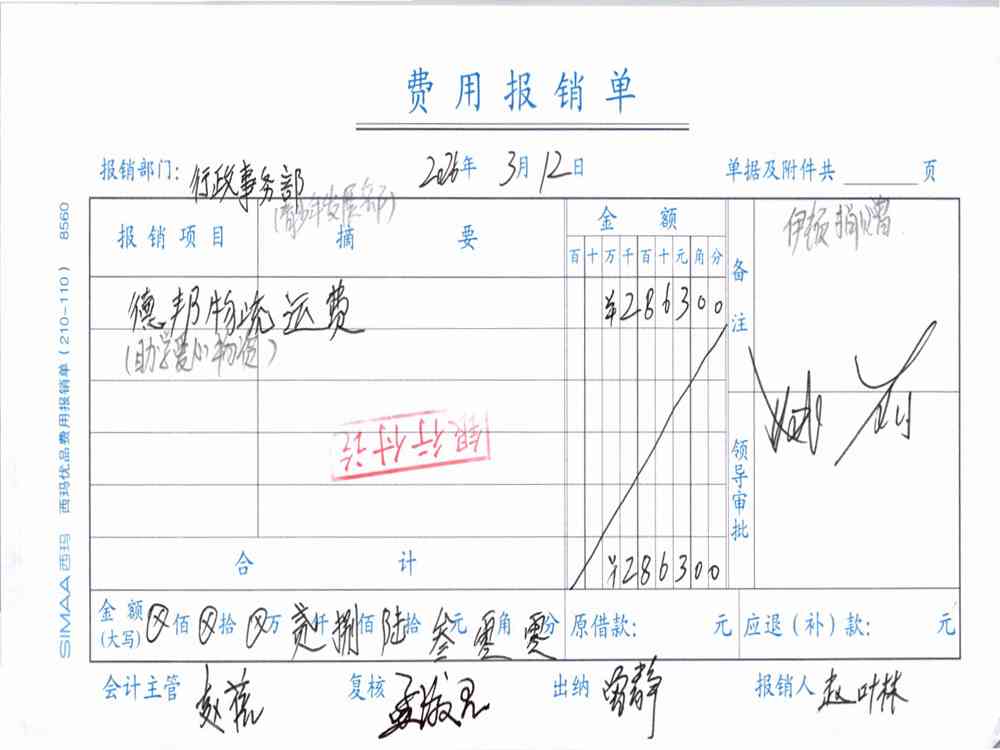 费用报销单
报销部门：行政事务部 2026年 3月12日 单据及附件共 页
(青少年发展部)
报销项目 摘 要 金 额 备注 伊顿捐赠
百 十 万 千 百 十 元 角 分
德邦物流运费 ¥286300
(助学爱心物资)
银行付讫
领导审批
合 计 ¥286300
金额(大写) ⊗佰⊗拾⊗万贰仟捌佰陆拾叁元零角零分 原借款： 元 应退（补）款： 元
会计主管 赵蓓 复核 出纳 曾静 报销人 赵叶林
SIMAA西玛 西玛优品费用报销单（210-110） 8560